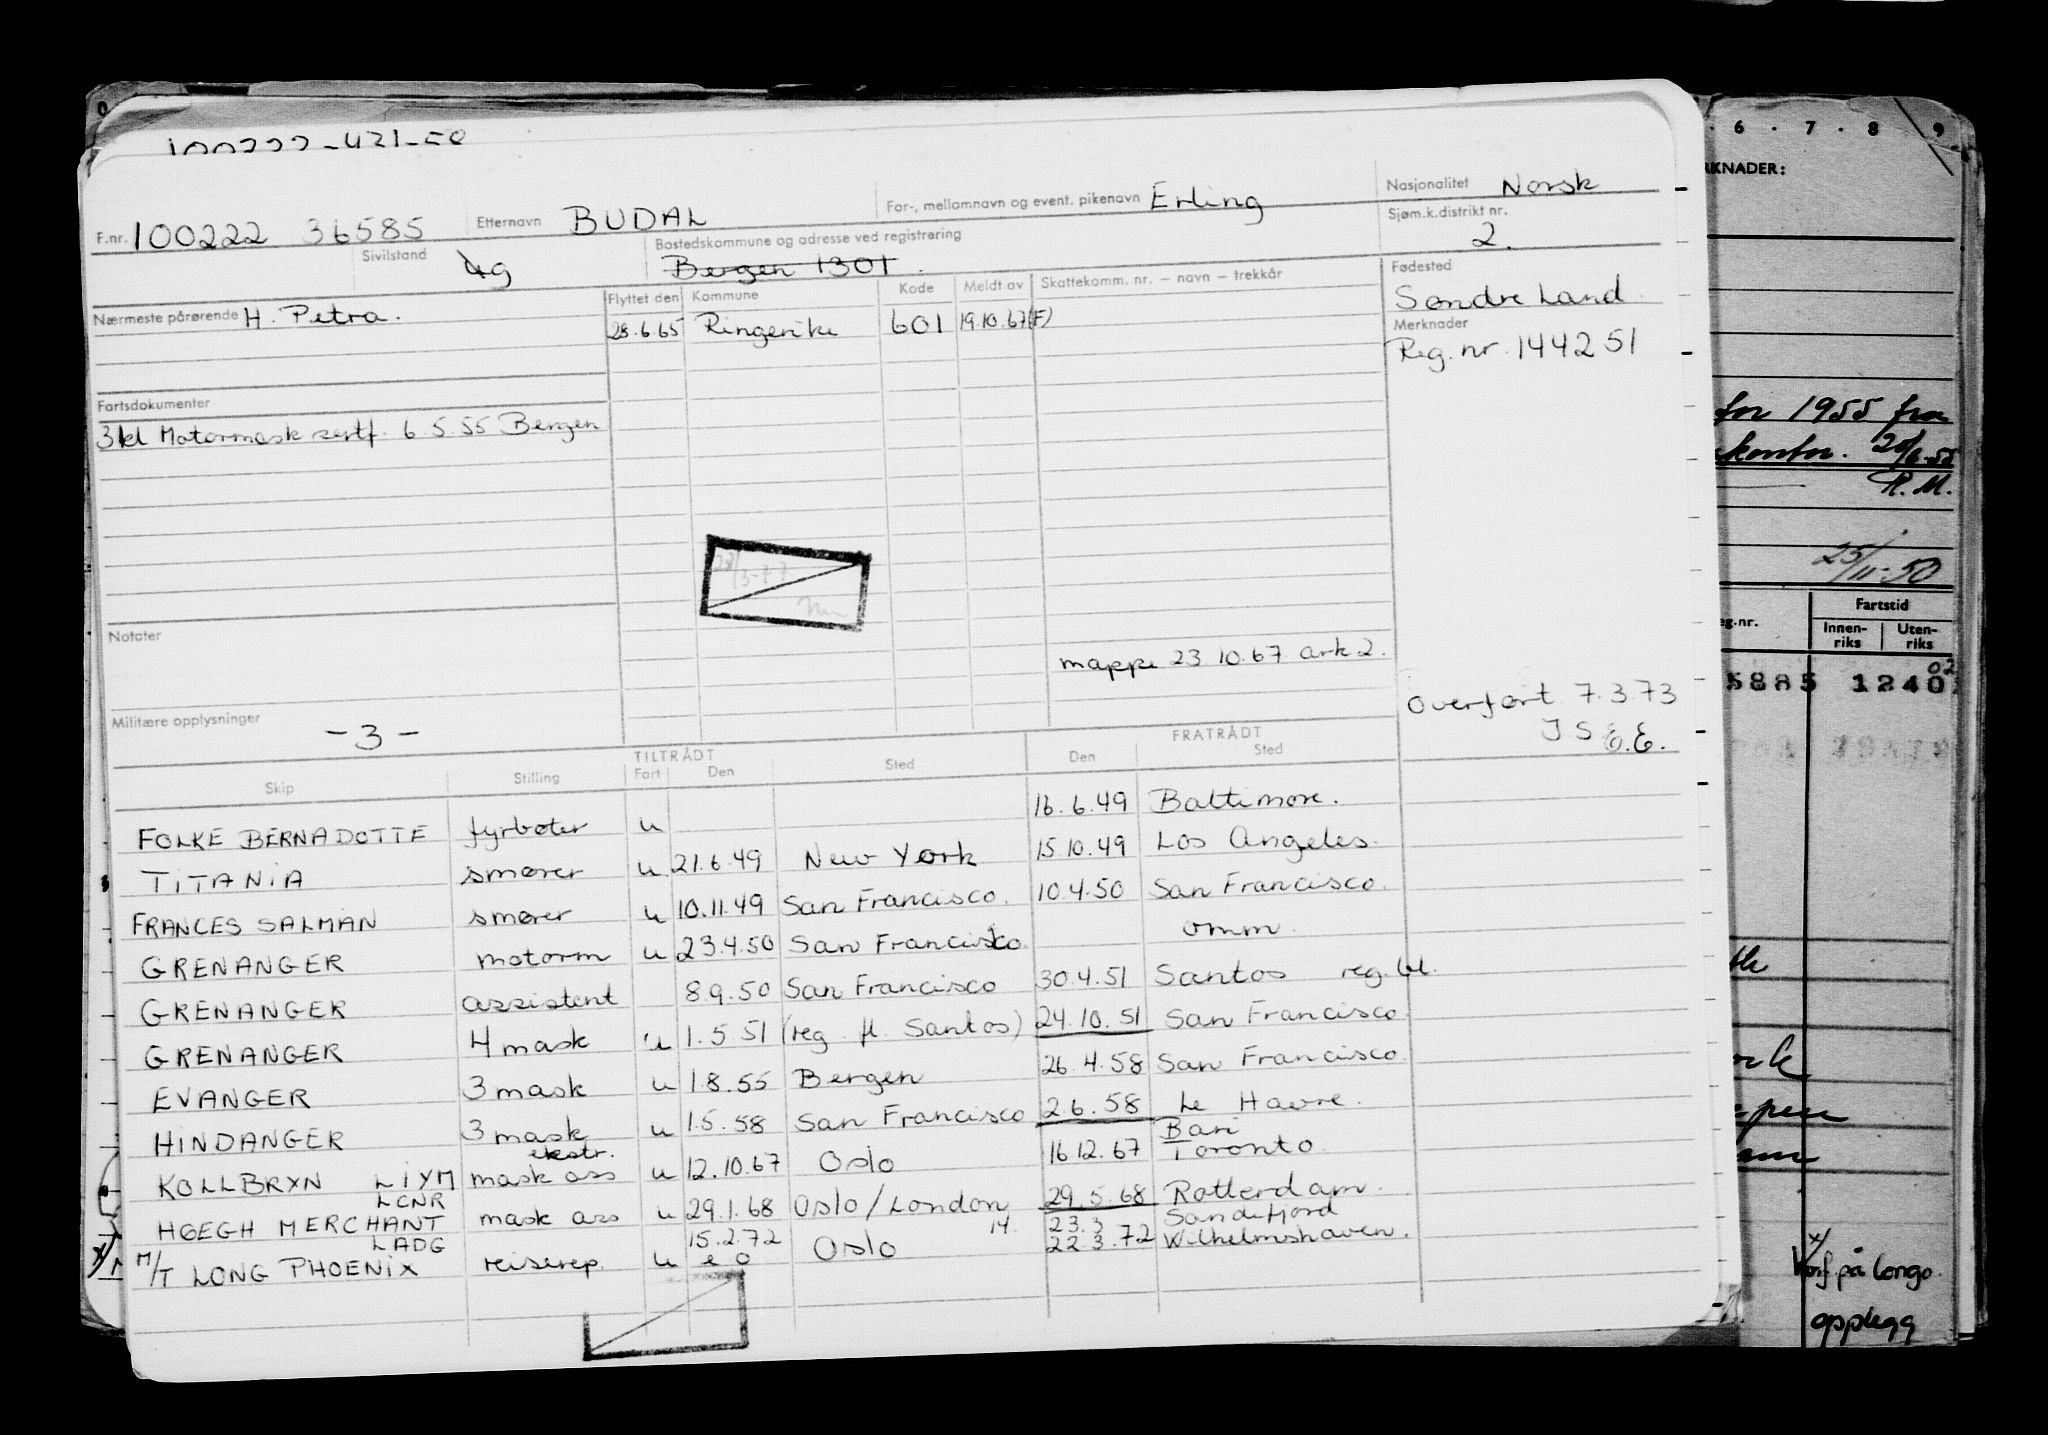 F.nr. 100222 36585 Etternavn BUDAL For-, mellomnavn og event. pikenavn Erling Nasjonalitet Norsk
Sivilstand g Bostedskommune og adresse ved registrering Bergen 1301. Sjøm.k.distrikt nr. 2.
Nærmeste pårørende H. Petra. Flyttet den Kommune Kode Meldt av Skattekomm. nr. – navn – trekkår Fødested
Søndre Land
28.6.65 Ringerike 601 19.10.67(F) Merknader
Reg. nr. 144251
Fartsdokumenter
3kl Motormask sertf. 6.5.55 Bergen
Notater
mappe 23.10.67 ark 2.
Overført 7.3.73
Militære opplysninger -3-
TILTRÅDT FRATRÅDT
Skip Stilling Fart Den Sted Den Sted
FOLKE BERNADOTTE fyrbøter u 16.6.49 Baltimore.
TITANIA smører u 21.6.49 New York 15.10.49 Los Angeles.
FRANCES SALMAN smører u 10.11.49 San Francisco. 10.4.50 San Francisco.
GRENANGER motorm u 23.4.50 San Francisco omm.
GRENANGER assistent 8.9.50 San Francisco 30.4.51 Santos reg. bl.
GRENANGER 4 mask u 1.5.51 (reg. fl. Santos) 24.10.51 San Francisco.
EVANGER 3 mask u 1.8.55 Bergen 26.4.58 San Francisco.
HINDANGER 3 mask u 1.5.58 San Francisco 2.6.58 Le Havre.
ekstr. Bari
KOLLBRYN LIYM mask ass u 12.10.67 Oslo 16.12.67 Toronto.
LCNR
HØEGH MERCHANT mask ass u 29.1.68 Oslo/London 29.5.68 Rotterdam.
LADG 15.2.72 14. 23.3 Sandefjord
M/T LONG PHOENIX reiserep. u e o Oslo 22.3.72 Wilhelmshaven.
6 . 7 . 8 9
KNADER:
for 1955 fra
kontor.
R.M.
25/11-50
Fartstid
eg.nr. Innen-riks Uten-riks
5885 1240 02
på Longo
opplegg